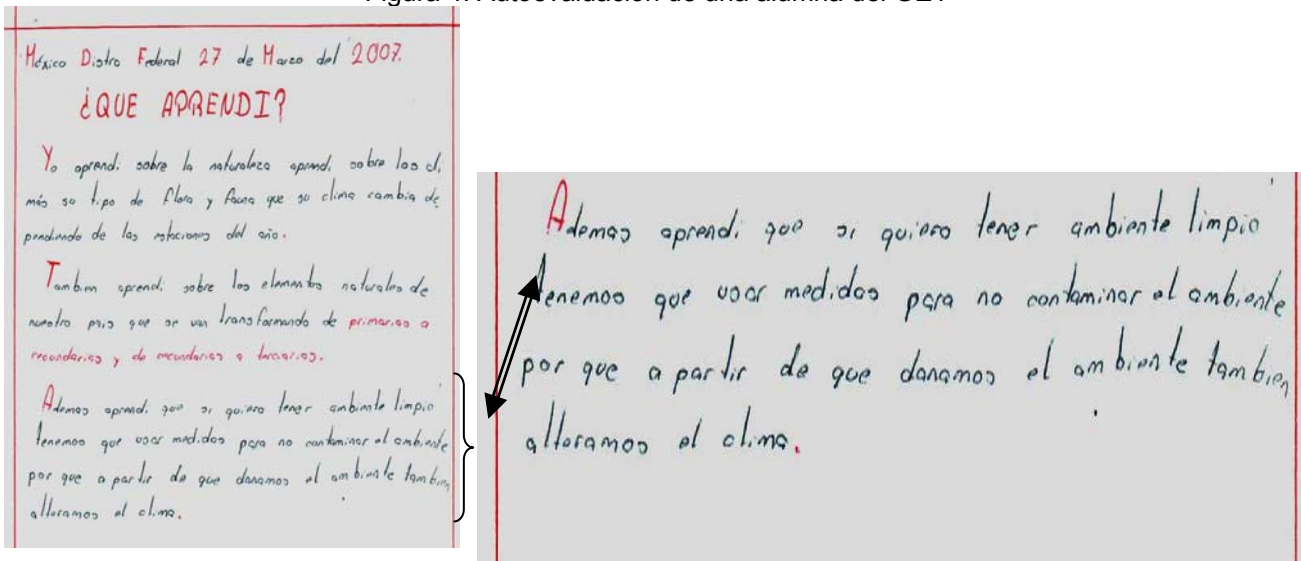 México Distro Federal 27 de Marzo del 2007.
¿QUE APRENDI?
Yo aprendi sobre la naturaleza aprendi sobre los cli
más so tipo de flora y fauna que su clima cambia de
pendiendo de las estaciones del año.
Tambien aprendi sobre los elementos naturales de
nuestro pais que se van transformando de primarias a
secundarias y de secundarias a terciarias.
Ademas aprendi que si quiero tener ambiente limpio
tenemos que usar medidas para no contaminar el ambiente
por que a partir de que danamos el ambiente tambien
alteramos el clima.
Ademas aprendi que si quiero tener ambiente limpio
tenemos que usar medidas para no contaminar el ambiente
por que a partir de que danamos el ambiente tambien
alteramos el clima.